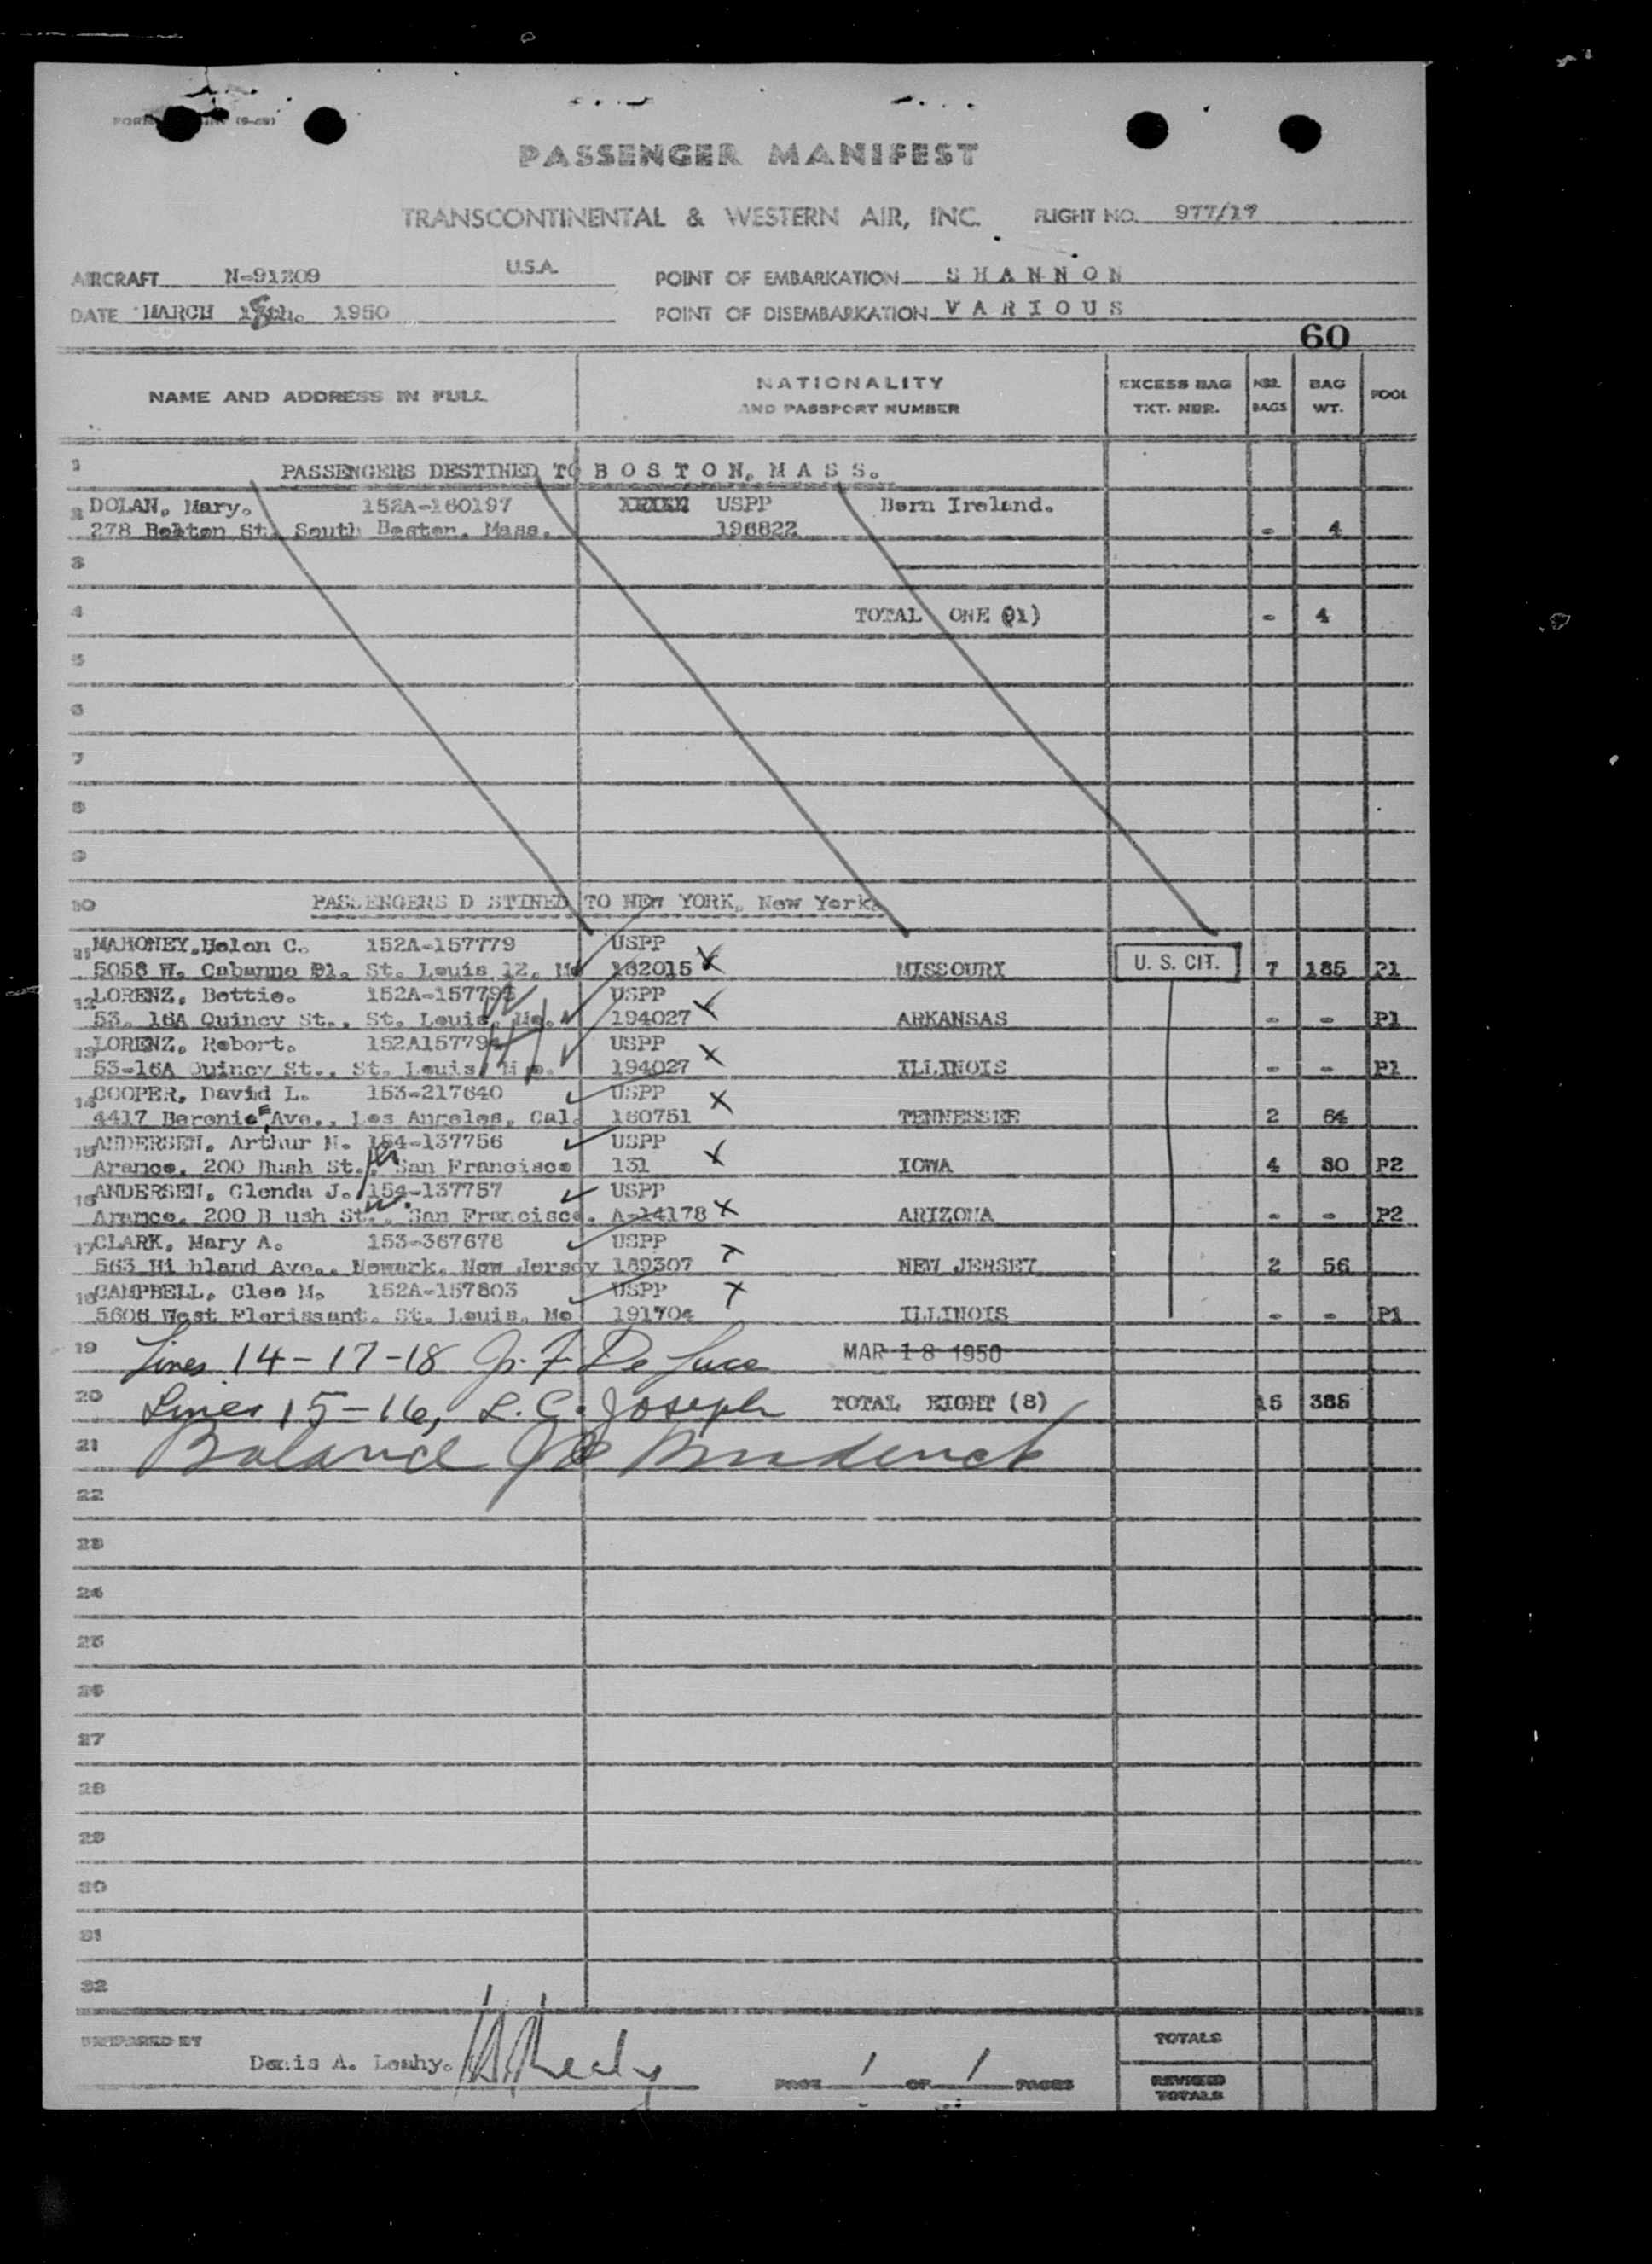 PASSENGER MANIFEST
TRANSCONTINENTAL & WESTERN AIR, INC. FLIGHT NO. 977/17
AIRCRAFT N-91209 U.S.A. POINT OF EMBARKATION SHANNON
DATE MARCH 18th. 1950 POINT OF DISEMBARKATION VARIOUS
60
NAME AND ADDRESS IN FULL NATIONALITY AND PASSPORT NUMBER EXCESS BAG TKT. NBR. NBR. BAGS BAG WT. POOL
1 PASSENGERS DESTINED TO BOSTON, MASS.
2 DOLAN, Mary. 152A-160197 USPP Born Ireland.
278 Bolton St. South Boston. Mass. 196822 - 4
3
4 TOTAL ONE (01) - 4
5
6
7
8
9
10 PASSENGERS D STINED TO NEW YORK, New York.
11 MAHONEY, Helen C. 152A-157779 USPP
5058 W. Cabanne Pl. St. Louis 12, Mo 162015 MISSOURI U. S. CIT. 7 185 P1
12 LORENZ, Bettie. USPP
53. 16A Quincy St., St. Louis, Mo. 194027 ARKANSAS - - P1
13 LORENZ, Robert. USPP
53-16A Quincy St., St. Louis, Mo. 194027 ILLINOIS - - P1
14 COOPER, David L. 153-217640 USPP
4417 Berenice Ave., Los Angeles, Cal. 160751 TENNESSEE 2 64
15 ANDERSEN, Arthur N. 154-137756 USPP
Aramco. 200 Bush St., San Francisco 131 IOWA 4 80 P2
16 ANDERSEN, Glenda J. 154-137757 USPP
Aramco. 200 B ush St., San Francisco. A-14178 ARIZONA - - P2
17 CLARK, Mary A. 153-367678 USPP
563 Hi hland Ave., Newark. New Jersey 189307 NEW JERSEY 2 56
18 CAMPBELL, Cleo M. 152A-157803 USPP
5606 West Florissant. St. Louis, Mo 191704 ILLINOIS - - P1
19 Lines 14-17-18 J. F. De Luce MAR 18 1950
20 Lines 15-16, L. G. Joseph TOTAL EIGHT (8) 15 385
21 Balance
22
23
24
25
26
27
28
29
30
31
32
PREPARED BY Denis A. Leahy. TOTALS
PAGE 1 OF 1 PAGES REVISED TOTALS